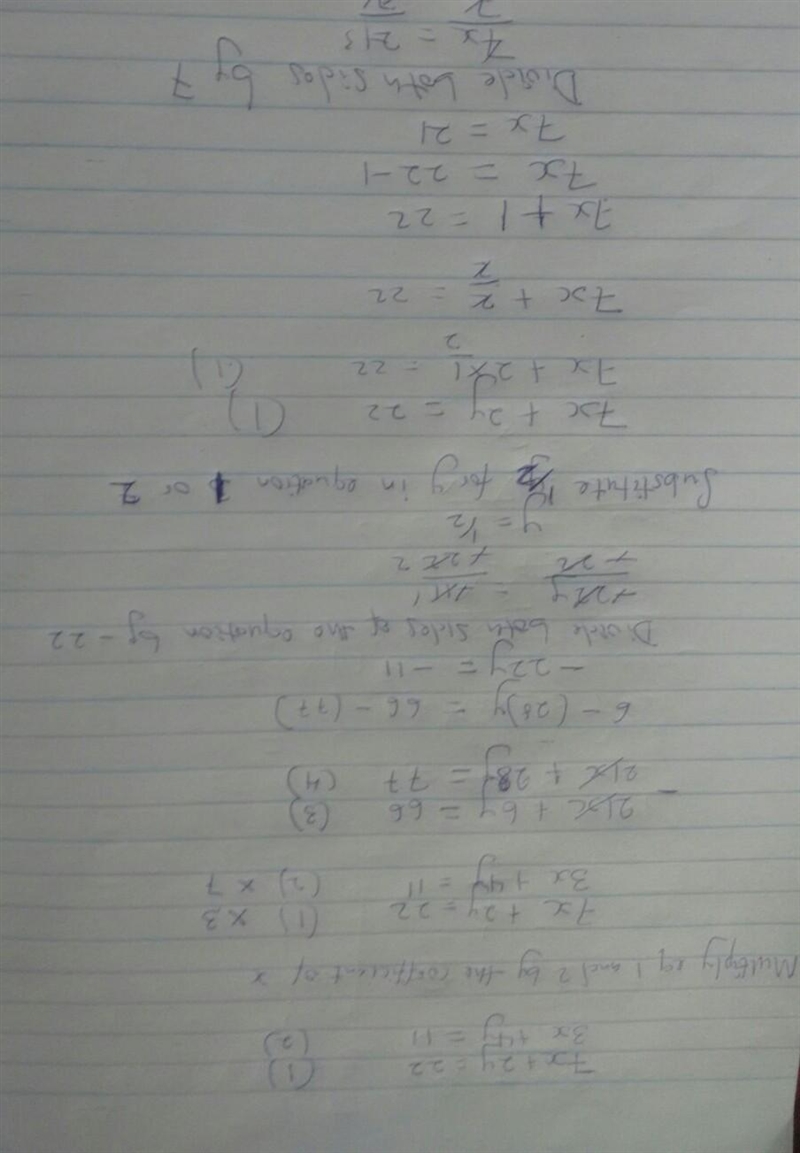 7x + 2y = 22 (1)
3x + 4y = 11 (2)
Multiply eq 1 and 2 by the coefficient of x
7x + 2y = 22 (1) × 3
3x + 4y = 11 (2) × 7
21x + 6y = 66 (3)
- 21x + 28y = 77 (4)
6 - (28)y = 66 - (77)
- 22y = - 11
Divide both sides of the equation by - 22
-22y = -11
-22 -22 2
y = 1/2
Substitute 1/2 for y in equation 1 or 2
7x + 2y = 22 (1)
7x + 2×1 = 22 (1)
2
7x + 2 = 22
2
7x + 1 = 22
7x = 22-1
7x = 21
Divide both sides by 7
7x = 21 3
7